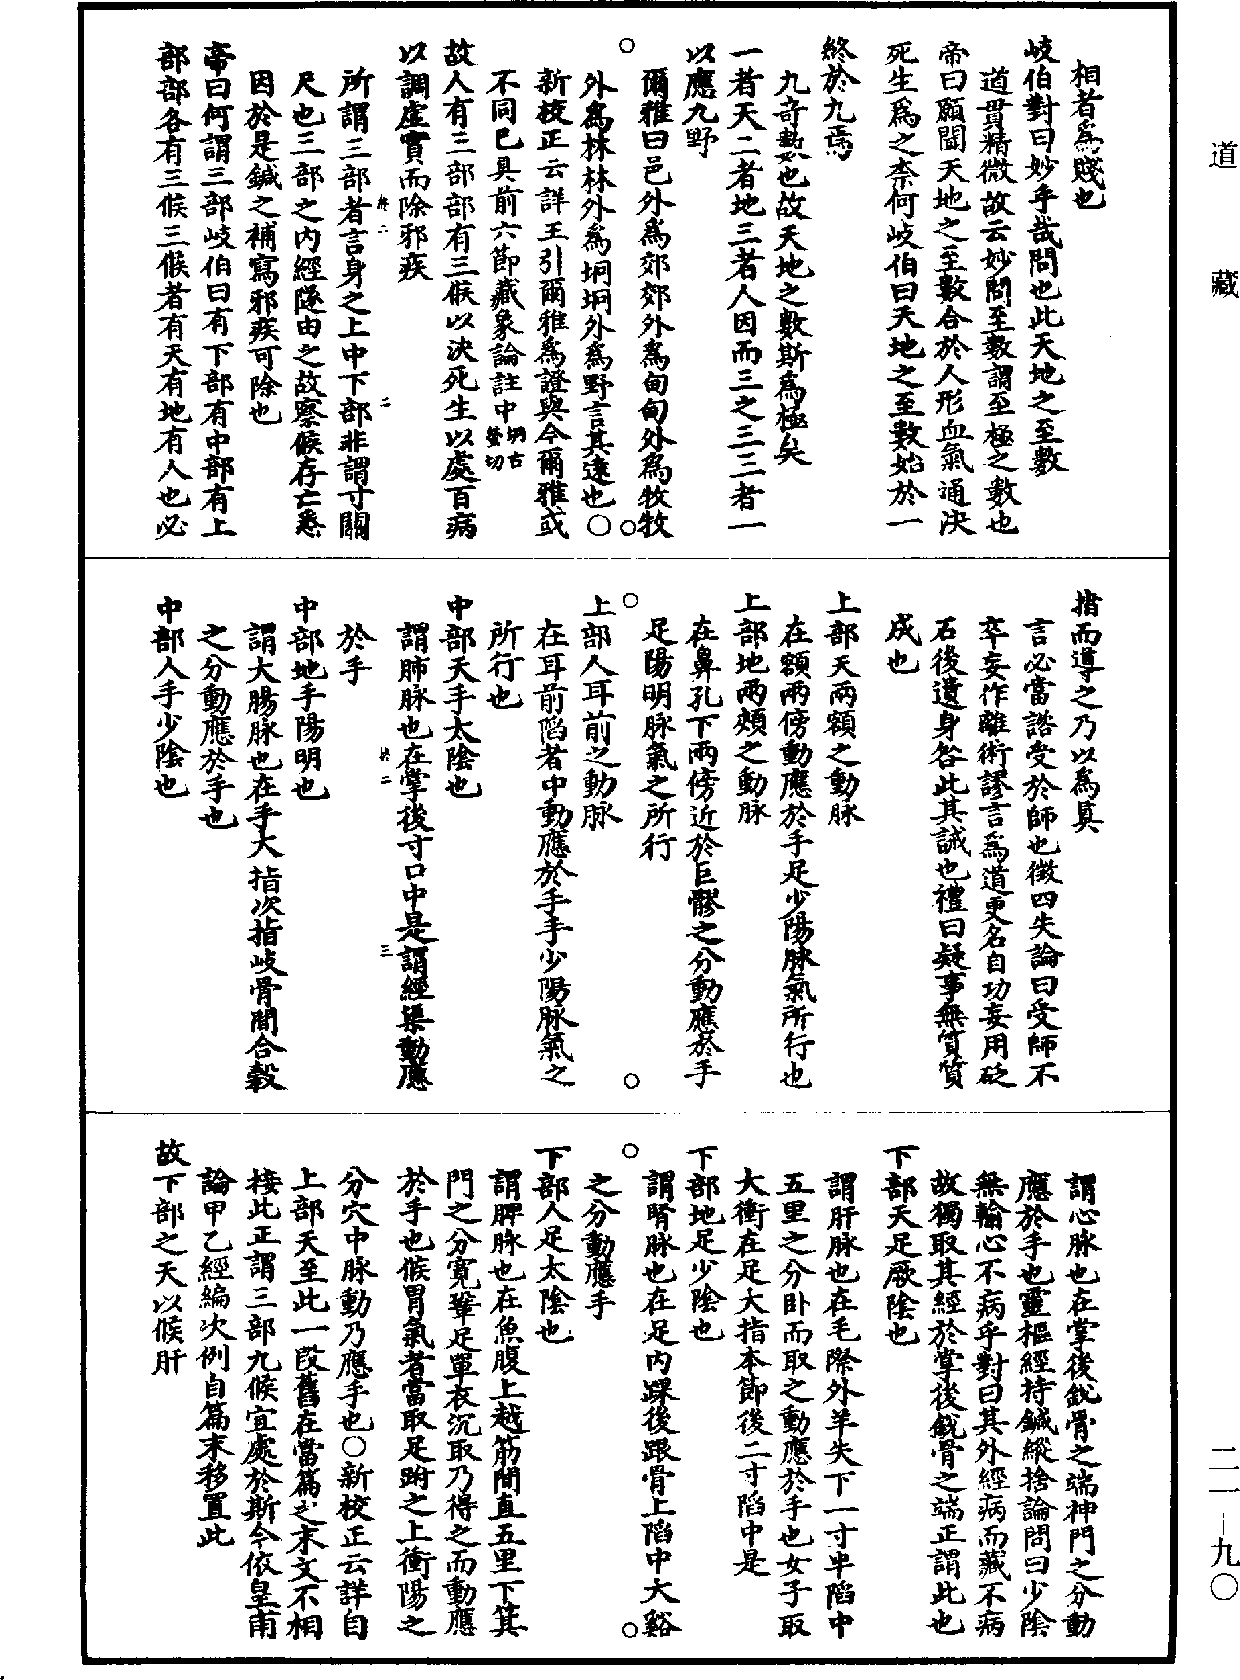 道藏
相者爲賤也
岐伯對曰妙乎哉問也此天地之至數
道貫精微故云妙問至數謂至極之數也
帝曰願聞天地之至數合於人形血氣通決
死生爲之柰何岐伯曰天地之至數始於一
終於九焉
九奇數也故天地之數斯爲極矣
一者天二者地三者人因而三之三三者一
以應九野
爾雅曰邑外爲郊郊外爲甸甸外爲牧牧
外爲林林外爲坰坰外爲野言其遠也○
新校正云詳王引爾雅爲證與今爾雅或
不同已具前六節藏象論註中坰古螢切
故人有三部部有三候以決死生以處百病
以調虛實而除邪疾
所謂三部者言身之上中下部非謂寸關
尺也三部之內經隧由之故察候存亡悉
因於是鍼之補寫邪疾可除也
帝曰何謂三部岐伯曰有下部有中部有上
部部各有三候三候者有天有地有人也必
指而導之乃以爲真
言必當諮受於師也徵四失論曰受師不
卒妄作雜術謬言爲道更名自功妄用砭
石後遺身咎此其誡也禮曰疑事無質質
成也
上部天兩額之動脉
在額兩傍動應於手足少陽脉氣所行也
上部地兩頰之動脉
在鼻孔下兩傍近於巨髎之分動應於手
足陽明脉氣之所行
上部人耳前之動脉
在耳前陷者中動應於手手少陽脉氣之
所行也
中部天手太陰也
謂肺脉也在掌後寸口中是謂經渠動應
於手
中部地手陽明也
謂大腸脉也在手大指次指岐骨間合穀
之分動應於手也
中部人手少陰也
謂心脉也在掌後銳骨之端神門之分動
應於手也靈樞經持鍼縱捨論問曰少陰
無輸心不病乎對曰其外經病而藏不病
故獨取其經於掌後銳骨之端正謂此也
下部天足厥陰也
謂肝脉也在毛際外羊矢下一寸半陷中
五里之分卧而取之動應於手也女子取
大衝在足大指本節後二寸陷中是
下部地足少陰也
謂腎脉也在足內踝後跟骨上陷中大谿
之分動應手
下部人足太陰也
謂脾脉也在魚腹上越筋間直五里下箕
門之分寬鞏足單衣沉取乃得之而動應
於手也候胃氣者當取足跗之上衝陽之
分穴中脉動乃應手也○新校正云詳自
上部天至此一段舊在當篇之末文不相
接此正謂三部九候宜處於斯今依皇甫
論甲乙經編次例自篇末移置此
故下部之天以候肝
二一—九○